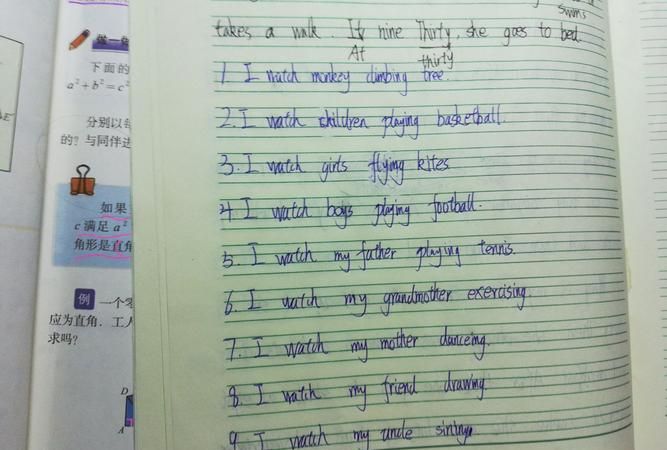 swims
takes a walk. It nine Thirty, she goes to bed.
At thirty
1. I watch monkey climbing tree.
2. I watch children playing basketball.
3. I watch girls flying kites
4 I watch boys playing football.
5. I watch my father playing tennis.
6. I watch my grandmother exercising.
7. I watch my mother danceing.
8. I watch my friend drawing
9 I watch my uncle
做一做
下面的
a²+b²=c²
分别以每
的？与同伴进
如果
c 满足 a²
角形是直角
例 一个零
应为直角. 工人
求吗？
D
A
E